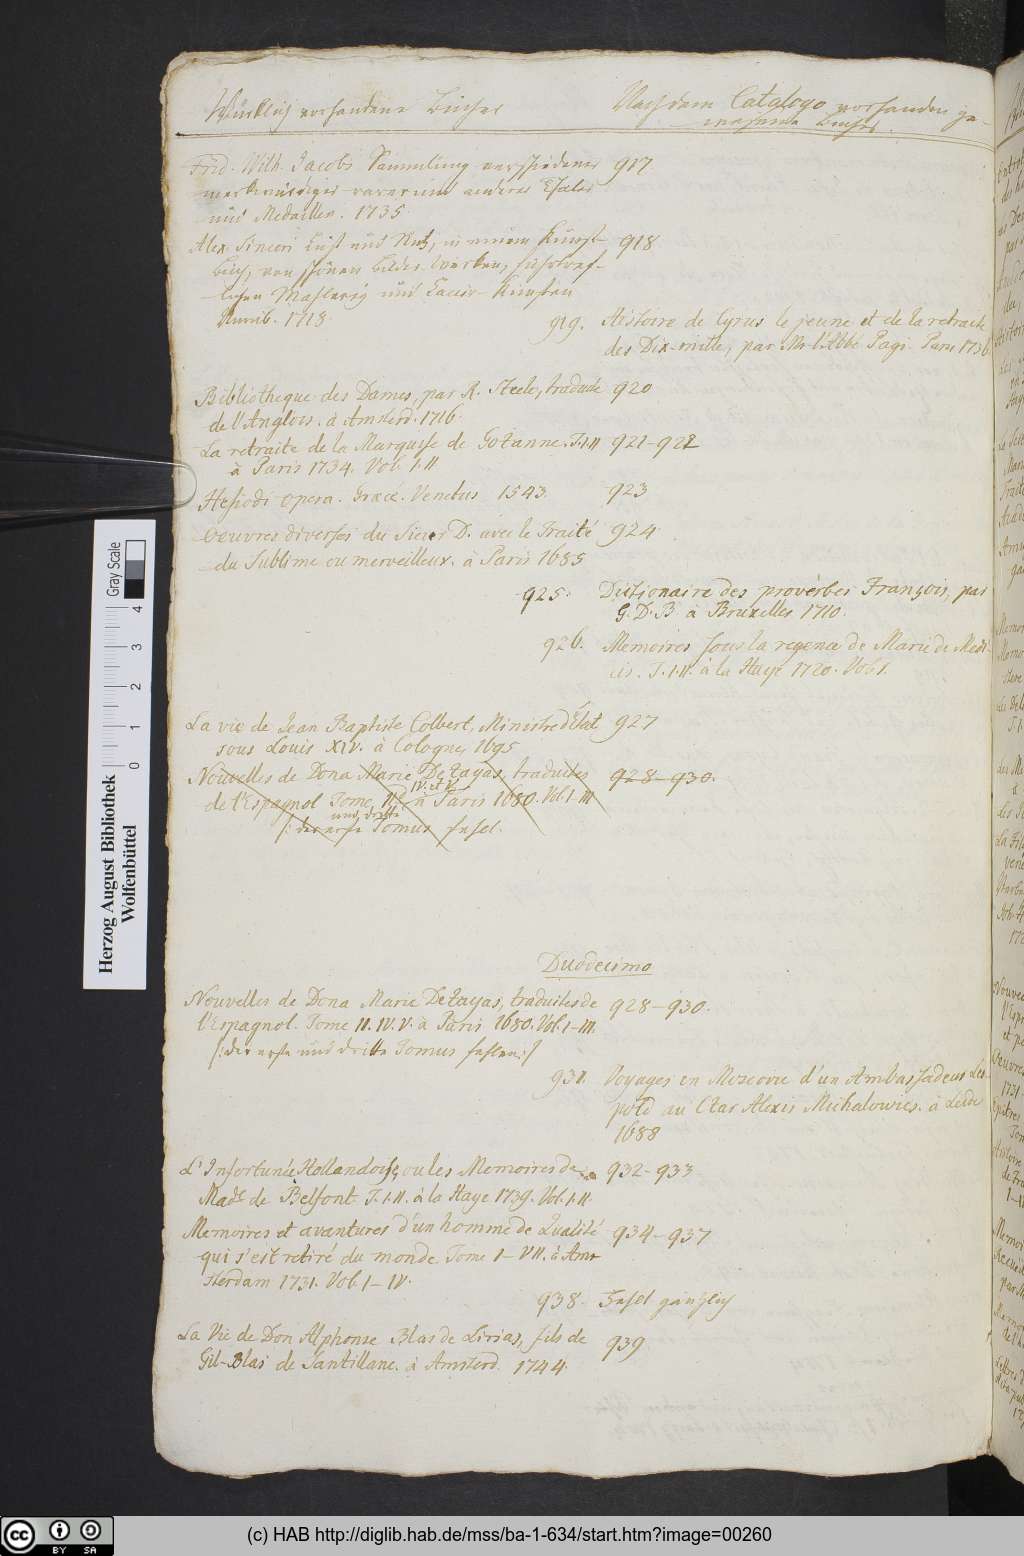 Würcklich vorhandene Bücher
Nach dem Catalogo vorhanden ge-
wesene Bücher.
Frid. Wilh. Jacobs Sammlung verschiedener 917
merckwürdiger rarer und anderer Thaler
und Medaillen. 1735.
Alex. Sinceri Lust und Nutz, in einem Kunst- 918
Buch, von schönen Bilder-Wercken, 
lichen Mahlerey und Laccir-Künsten
Nurnb. 1718.
919. Histoire de Cyrus le jeune et de la retraite
des Dix-mille, par Mr. l'Abbé Pagi. Paris 1736.
Bibliotheque des Dames, par R. Steele, traduite 920
de l'Anglois. à Amsterd. 1716.
La retraite de la Marquise de Gozanne. T. I. II 921-922
à Paris 1734. Vol. I. II.
Hesiodi opera. Graecè. Venetiis 1543. 923
Oeuvres diverses du Sieur D. avec le Traité 924
du Sublime ou merveilleux. à Paris 1685
925. Dictionaire des proverbes François, par
G. D. B. à Bruxelles 1710.
926. Memoires sous la regence de Marie de Medi-
cis. T. I. II. à la Haye 1720. Vol. I.
La vie de Jean Baptiste Colbert, Ministre d'Etat 927
sous Louis XIV. à Cologne, 1695
Nouvelles de Dona Marie De Zayas, traduites 928-930.
de l'Espagnol Tome II. IV. et V. à Paris 1680. Vol. I-III
[: der erste und dritte Tomus fehl.
Duodecimo
Nouvelles de Dona Marie De Zayas, traduites de 928-930.
l'Espagnol. Tome II. IV. V. à Paris 1680. Vol. I-III.
[: der erste und dritte Tomus fehlen :]
931. Voyages en Moscovie d'un Ambassadeur Leo-
pold au Czar Alexis Michalowics. à Leide
1688
L'Infortunée Hollandoise, ou les Memoires de 932-933.
Made de Belfont. T. I. II. à la Haye 1739. Vol. I. II.
Memoires et avantures d'un homme de Qualité 934-937
qui s'est retiré du monde. Tome I-VII. à Am-
sterdam 1731. Vol. I-IV.
938. Fehlt gänzlich
La Vie de Don Alphonse Blas de Lirias, fils de 939
Gil-Blas de Santillane. à Amsterd. 1744.
Herzog August Bibliothek
Wolfenbüttel
Gray Scale
0 1 2 3 4
cc BY SA
(c) HAB http://diglib.hab.de/mss/ba-1-634/start.htm?image=00260